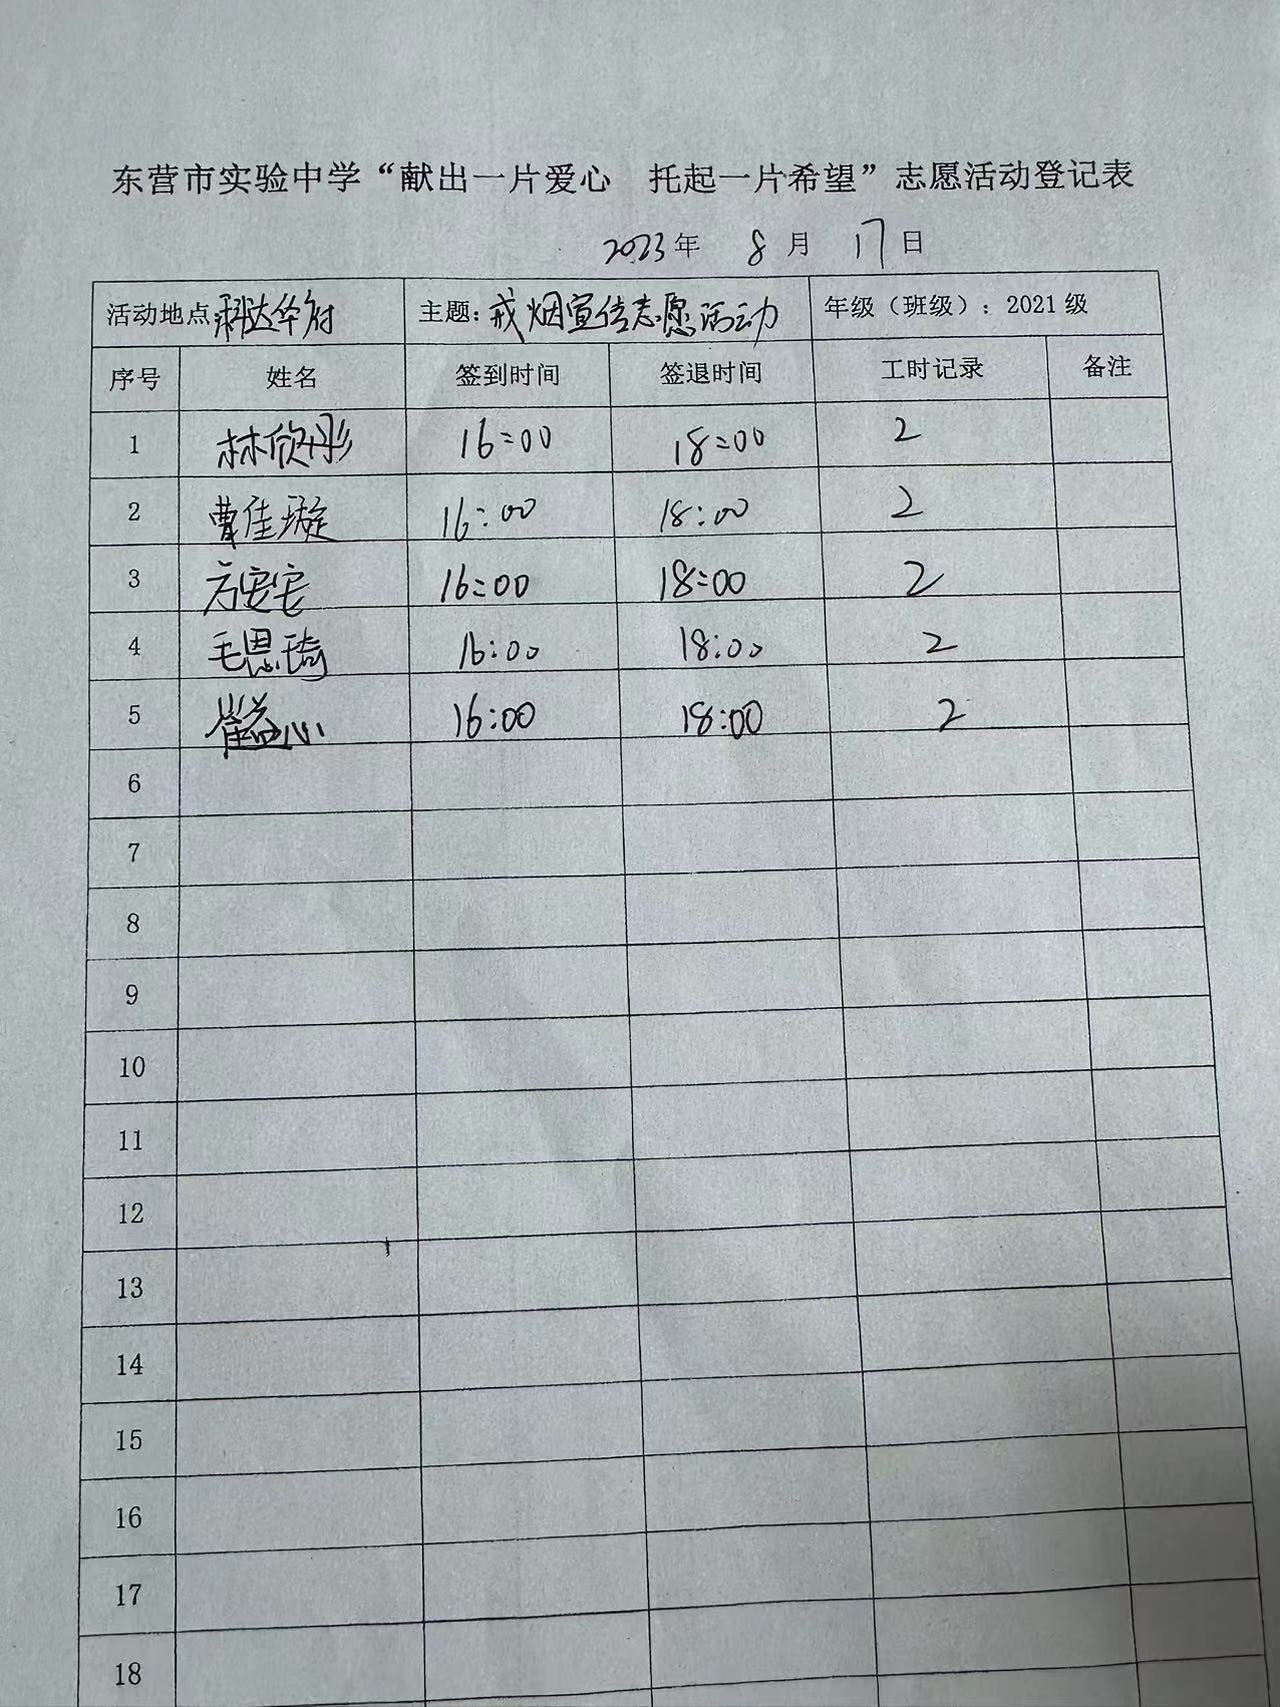 东营市实验中学“献出一片爱心 托起一片希望”志愿活动登记表
2023年 8月 17日
活动地点 科达华府 主题：戒烟宣传志愿活动 年级（班级）：2021级
序号 姓名 签到时间 签退时间 工时记录 备注
1 林欣彤 16:00 18:00 2
2 曹佳璇 16:00 18:00 2
3 16:00 18:00 2
4 毛恩琦 16:00 18:00 2
5 崔益心 16:00 18:00 2
6
7
8
9
10
11
12
13
14
15
16
17
18